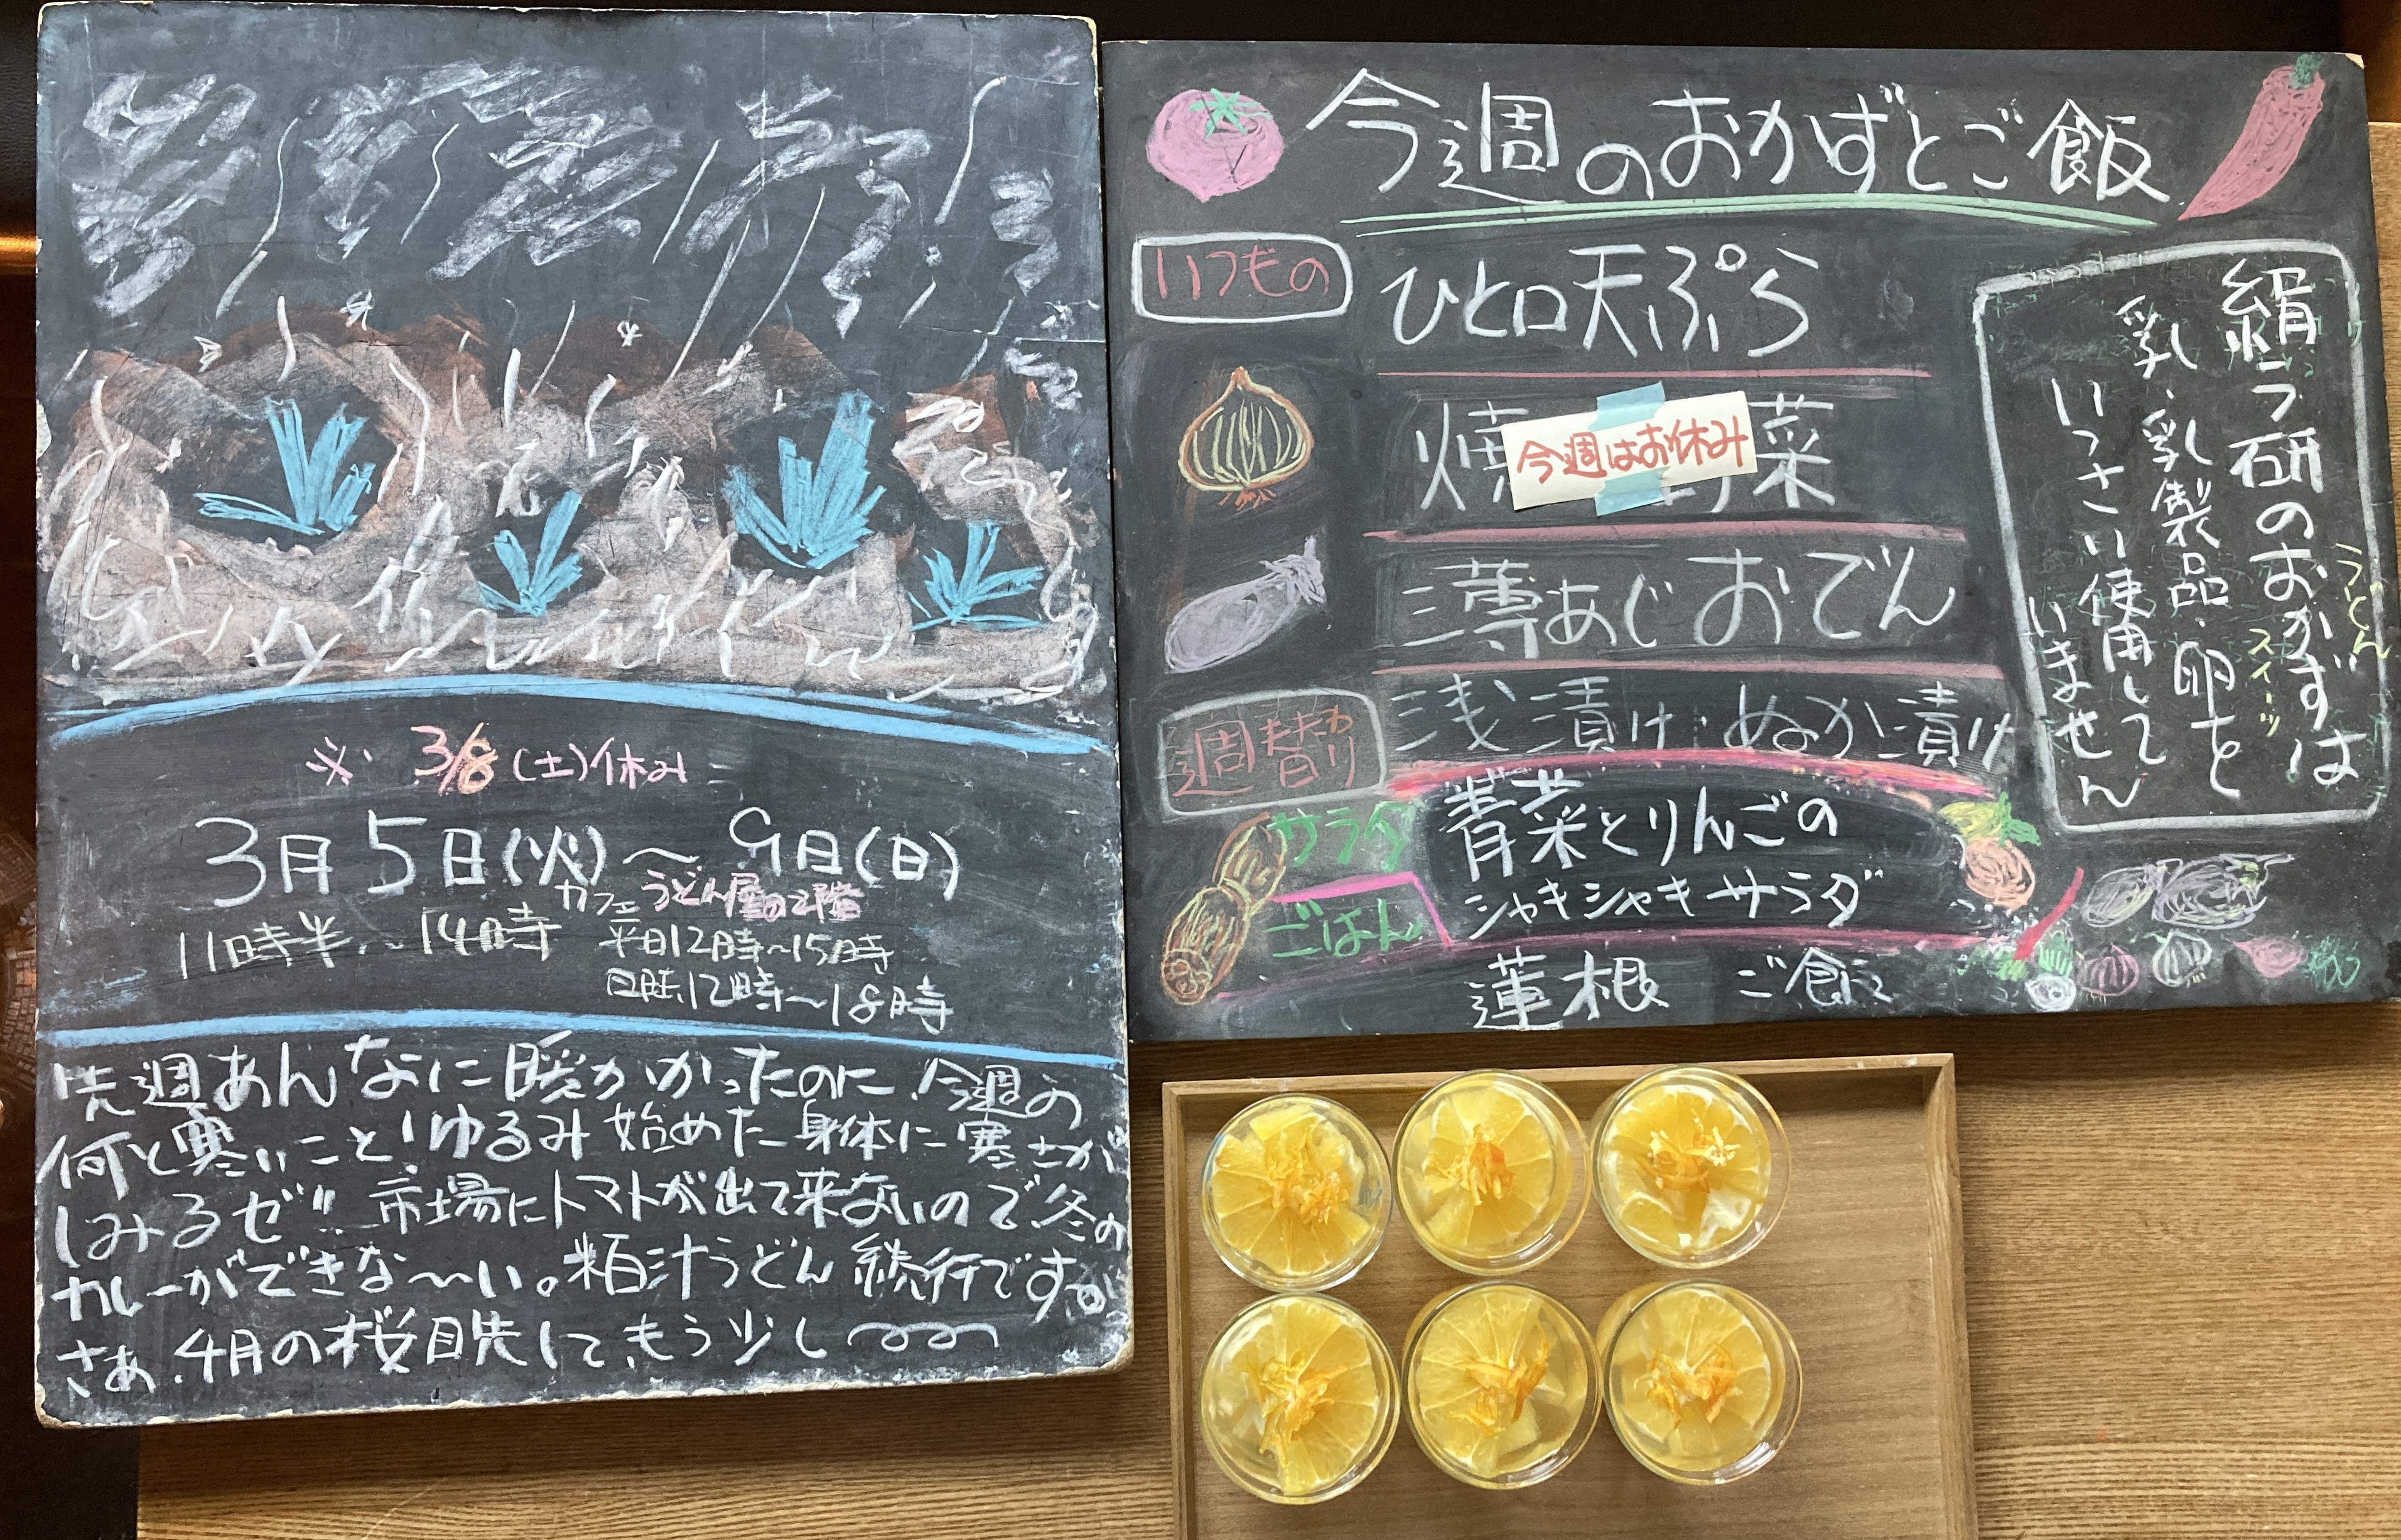 ※ 3/8(土)休み
3月5日(火)〜9日(日)
11時半〜14時
カフェ うどん屋の2階
平日12時〜15時
日時12時〜18時
先週あんなに暖かかったのに、今週の
何と寒いこと!ゆるみ始めた身体に寒さが
しみるゼ!!市場にトマトが出て来ないので、冬の
カレーができな〜い。粕汁うどん続行です。
さぁ、4月の桜目先して、もう少し
今週のおかずとご飯
いつもの
ひと口天ぷら
焼 菜
今週はお休み
あじおでん
週替わり
浅漬け・ぬか漬け
サラダ
青菜とりんごの
シャキシャキサラダ
ごはん
蓮根 ご飯
絹ラ研のおかずは
うどん
スイーツ
乳・乳製品・卵を
いっさい使用して
いません